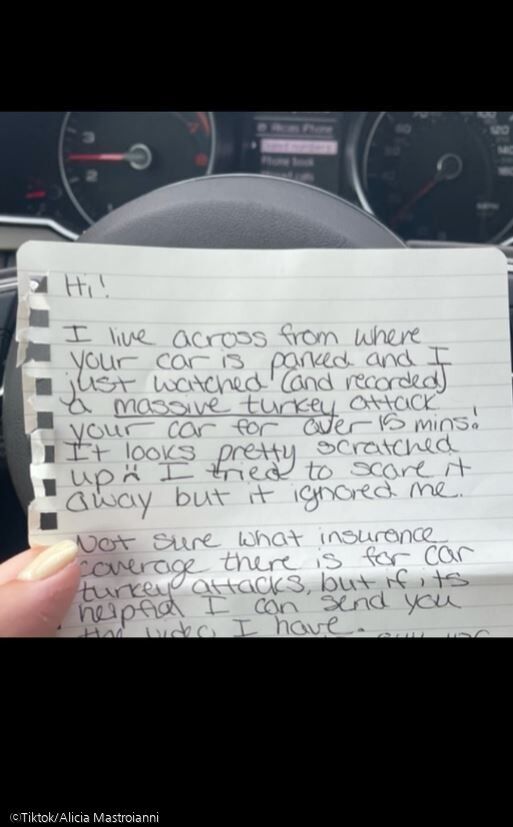 Hi!
I live across from where
your car is parked and I
just watched (and recorded)
a massive turkey attack
your car for over 15 mins!
It looks pretty scratched
up I tried to scare it
away but it ignored me.
Not sure what insurance
coverage there is for car
turkey attacks, but if its
helpful I can send you
the video I have.
Phone book
3
2
©Tiktok/Alicia Mastroianni